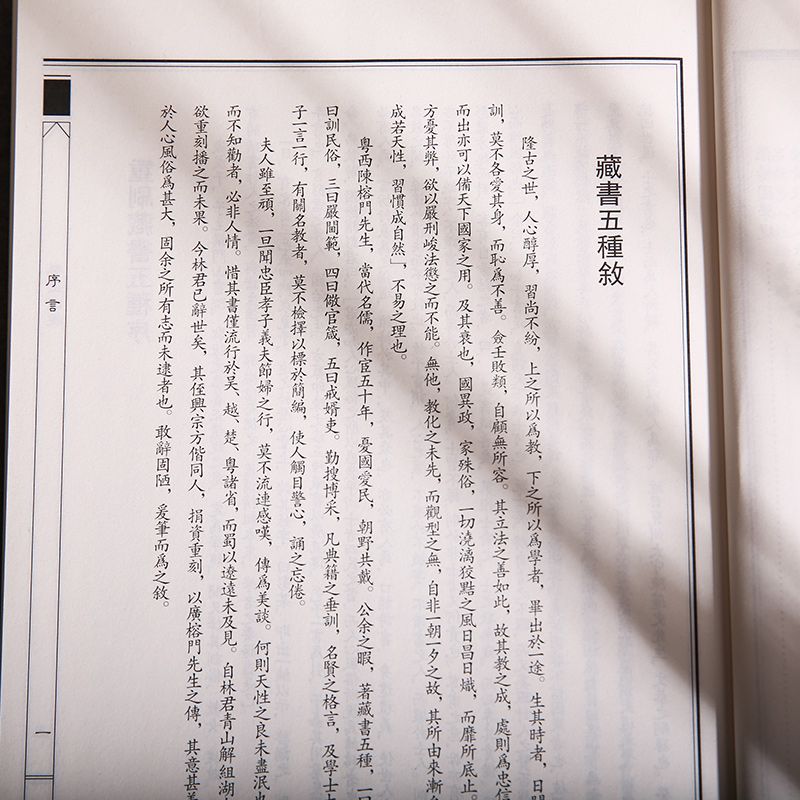 藏書五種敘
隆古之世，人心醇厚，習尚不紛，上之所以爲教，下之所以爲學者，畢出於一途。生其時者，日聞
訓，莫不各愛其身，而恥爲不善。僉壬敗類，自顧無所容。其立法之善如此，故其教之成，處則爲忠信
而出亦可以備天下國家之用。及其衰也，國異政，家殊俗，一切澆漓狡黠之風日昌日熾，而靡所底止。
方憂其弊，欲以嚴刑峻法懲之而不能。無他，教化之未先，而觀型之無，自非一朝一夕之故，其所由來漸
成若天性，習慣成自然」，不易之理也。
粵西陳榕門先生，當代名儒，作宦五十年，憂國愛民，朝野共戴。公余之暇，著藏書五種，一曰
曰訓民俗，三曰嚴閫範，四曰儆官箴，五曰戒婿吏。勤搜博采，凡典籍之垂訓，名賢之格言，及學士大
子一言一行，有關名教者，莫不檢擇以標於簡編，使人觸目警心，誦之忘倦。
夫人雖至頑，一旦聞忠臣孝子義夫節婦之行，莫不流連感嘆，傳爲美談。何則天性之良未盡泯也
而不知勸者，必非人情。惜其書僅流行於吴、越、楚、粵諸省，而蜀以遼遠未及見。自林君青山解組湖
欲重刻播之而未果。今林君已辭世矣，其侄興宗方偕同人，捐資重刻，以廣榕門先生之傳，其意甚善
於人心風俗爲甚大，固余之所有志而未逮者也。敢辭固陋，爰筆而爲之敘。
序言
一